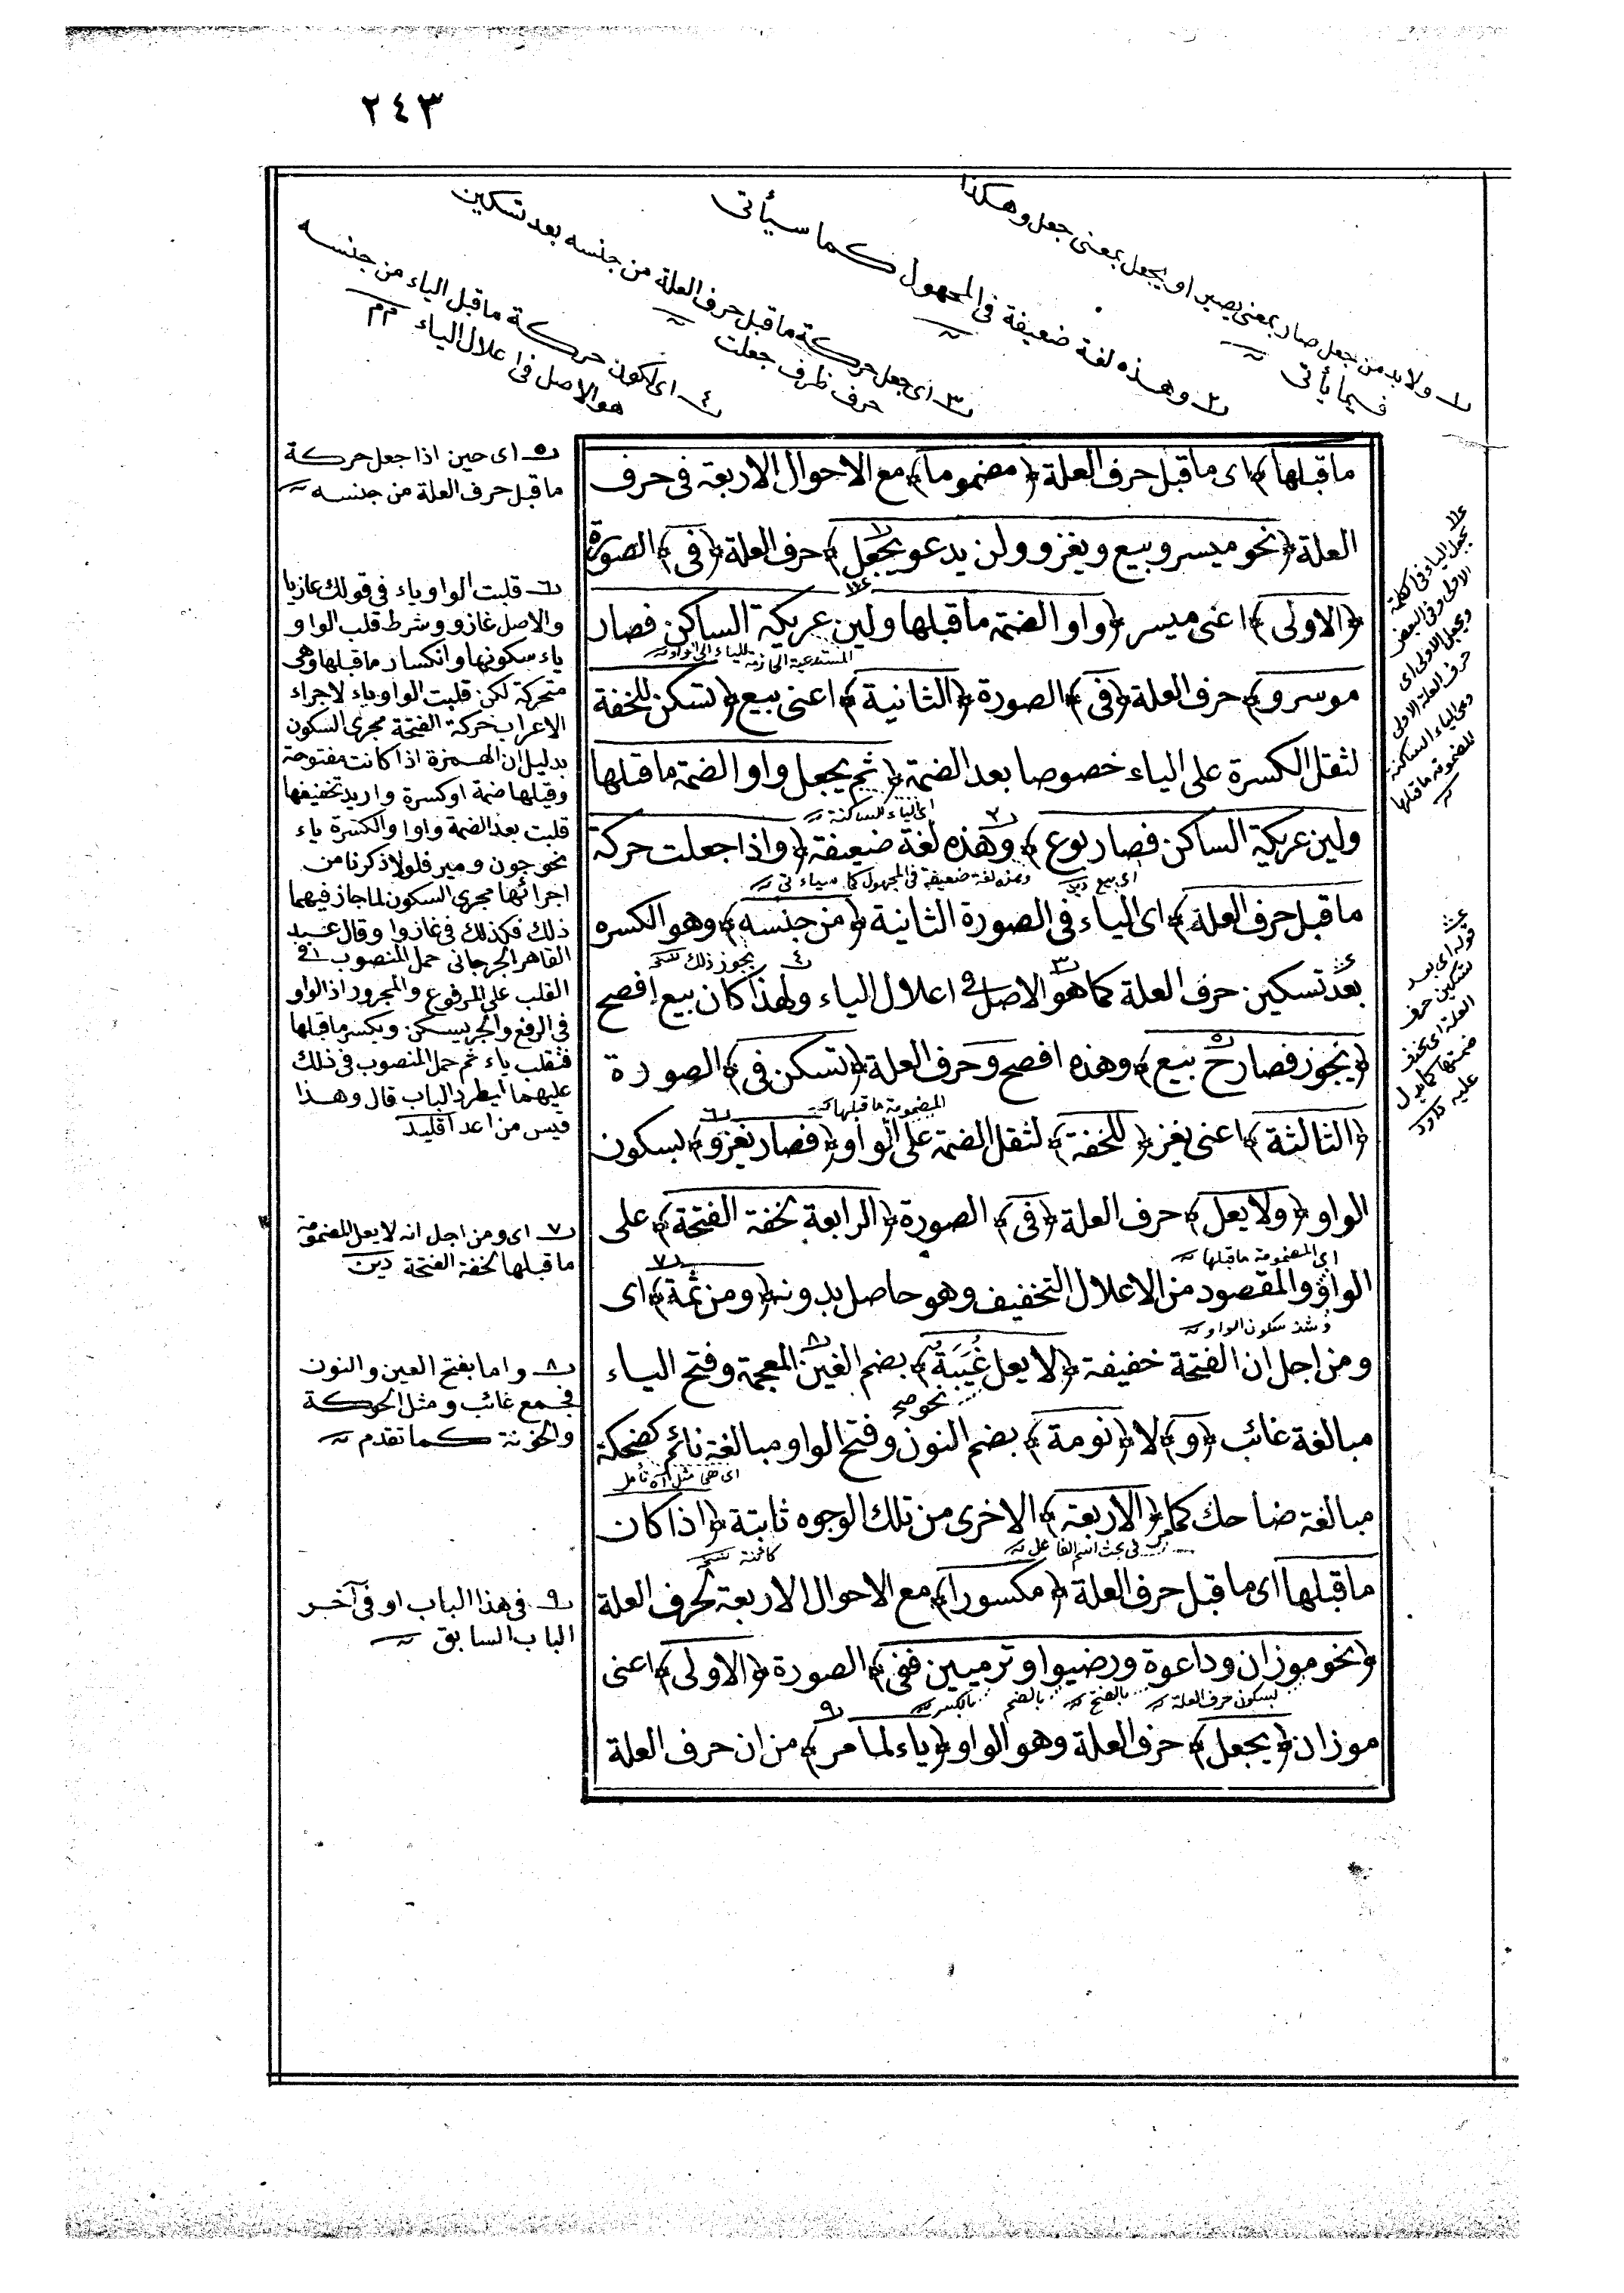 ٢٤٣
ولا بد من جعل صار بمعنى يصير او يجعل بمعنى جعل وهكذا
فيما يأتى
٢ وهذه لغة ضعيفة فى المجهول كما سيأتى
٣ اى جعل حركة ما قبل حرف العلة من جنسه بعد تسكين
حرف ظرف جعلت
٤ اى لكون حركة ما قبل الياء من جنسه
هو الاصل فى اعلال الياء
ما قبلها﴾ اى ما قبل حرف العلة ﴿مضموما﴾ مع الاحوال الاربعة فى حرف
العلة ﴿نحو ميسر وبيع ويغزو ولن يدعو يجعل﴾ حرف العلة ﴿فى﴾ الصورة
﴿الاولى﴾ اعنى ميسر ﴿واوا لضمة ما قبلها ولين عريكة الساكن فصار
موسر و﴾ حرف العلة ﴿فى﴾ الصورة ﴿الثانية﴾ اعنى بيع ﴿تسكن للخفة
لثقل الكسرة على الياء خصوصا بعد الضمة ﴿ثم يجعل واوا لضمة ما قبلها
اى الياء الساكنة
ولين عريكة الساكن فصار بوع﴾ وهذه لغة ضعيفة ﴿واذا جعلت حركة
وهذه لغة ضعيفة فى المجهول كما سيأتى
ما قبل حرف العلة﴾ اى الياء فى الصورة الثانية ﴿من جنسه﴾ وهو الكسره
يجوز ذلك
بعد تسكين حرف العلة كما هو الاصل فى اعلال الياء ولهذا كان بيع افصح
﴿يجوز فصار ح بيع﴾ وهذه افصح وحرف العلة ﴿تسكن فى﴾ الصورة
المضمومة ما قبلها
﴿الثالثة﴾ اعنى يغز ﴿للخفة﴾ لثقل الضمة على الواو ﴿فصار يغزو﴾ بسكون
الواو ﴿ولا يعل﴾ حرف العلة ﴿فى﴾ الصورة ﴿الرابعة لخفة الفتحة﴾ على
اى المضمومة ما قبلها
الواو والمقصود من الاعلال التخفيف وهو حاصل بدونه ﴿ومن ثمة﴾ اى
ومن اجل ان الفتحة خفيفة ﴿لا يعل غُيَبَة﴾ بضم الغين المعجمة وفتح الياء
مبالغة غائب ﴿و﴾ لا ﴿نومة﴾ بضم النون وفتح الواو مبالغة نائم كضحكة
مبالغة ضاحك كما مر ﴿الاربعة﴾ الاخرى من تلك الوجوه ثابتة ﴿اذا كان
فى بحث اسم الفاعل
ما قبلها اى ما قبل حرف العلة ﴿مكسورا﴾ مع الاحوال الاربعة لحرف العلة
﴿نحو موزان وداعوة ورضيوا وترميين ففى﴾ الصورة ﴿الاولى﴾ اعنى
بسكون حرف العلة بالفتح بالضم بالكسر
موزان ﴿يجعل﴾ حرف العلة وهو الواو ﴿ياء لما مر﴾ من ان حرف العلة
٥ اى حين اذا جعل حركة
ما قبل حرف العلة من جنسه
٦ قلبت الواو ياء فى قولك غازيا
والاصل غازو وشرط قلب الواو
ياء سكونها وانكسار ما قبلها وهى
متحركة لكن قلبت الواو ياء لاجراء
الاعراب حركة الفتحة مجرى السكون
بدليل ان الهمزة اذا كانت مفتوحة
وقبلها ضمة او كسرة واريد تخفيفها
قلبت بعد الضمة واوا والكسرة ياء
نحو جون ومير فلولا ذكرنا من
اجرائها مجرى السكون لما جاز فيهما
ذلك فكذلك فى غازوا وقال عبد
القاهر الجرجانى حمل المنصوب فى
القلب على المرفوع والمجرور اذ الواو
فى الرفع والجر يسكن ويكسر ما قبلها
فتقلب ياء ثم حمل المنصوب فى ذلك
عليهما ليطرد الباب قال وهذا
قيس من اعد اقليد
٧ اى ومن اجل انه لا يعل المضمومة
ما قبلها لخفة الفتحة
٨ واما بفتح العين والنون
فجمع غائب ومثل الحركة
والخونة كما تقدم
٩ فى هذا الباب او فى آخر
الباب السابق
يجعل الياء فى كلمة
حرف العلة الاولى
المضمومة ما قبلها
قوله اى بعد
تسكين حرف
العلة اى بحذف
ضمتها كما يدل
عليه داود